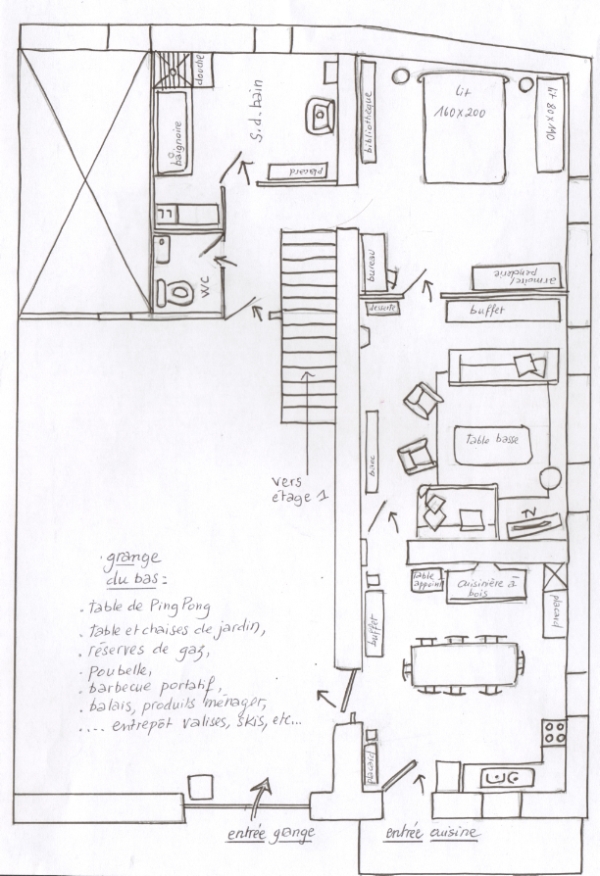 douche
baignoire
S.d.bain
placard
bibliothèque
Lit
160x200
WC
bureau
armoire/
penderie
desserte
buffet
table basse
TV
banc
vers
étage 1
grange
du bas:
. table de Ping Pong
. table et chaises de jardin,
. réserves de gaz,
. poubelle,
. barbecue portatif,
. balais, produits ménager,
.... entrepôt valises, skis, etc...
table
appoint
cuisinière à
bois
placard
buffet
placard
entrée gange
entrée cuisine